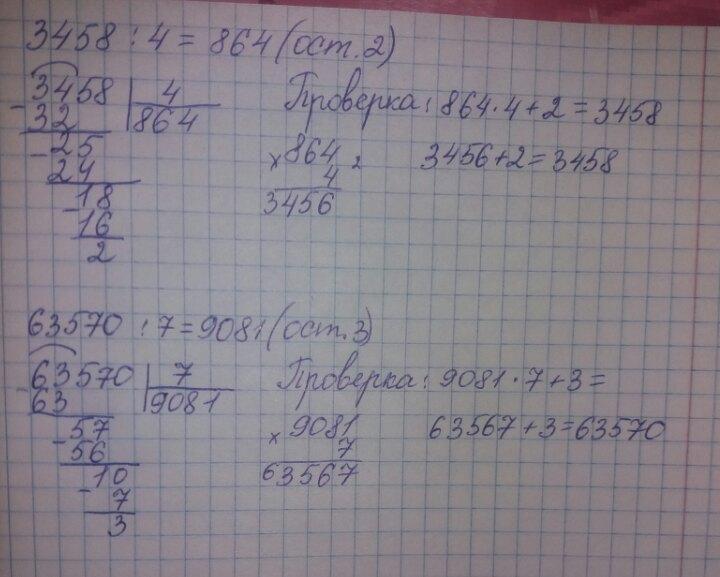 3458 : 4 = 864 (ост. 2)
- 3458 | 4
32 | 864
- 25
24
- 18
16
2
Проверка: 864 · 4 + 2 = 3458
× 864
4
3456
3456 + 2 = 3458
63570 : 7 = 9081 (ост. 3)
- 63570 | 7
63 | 9081
- 57
56
- 10
7
3
Проверка: 9081 · 7 + 3 =
× 9081
7
63567
63567 + 3 = 63570